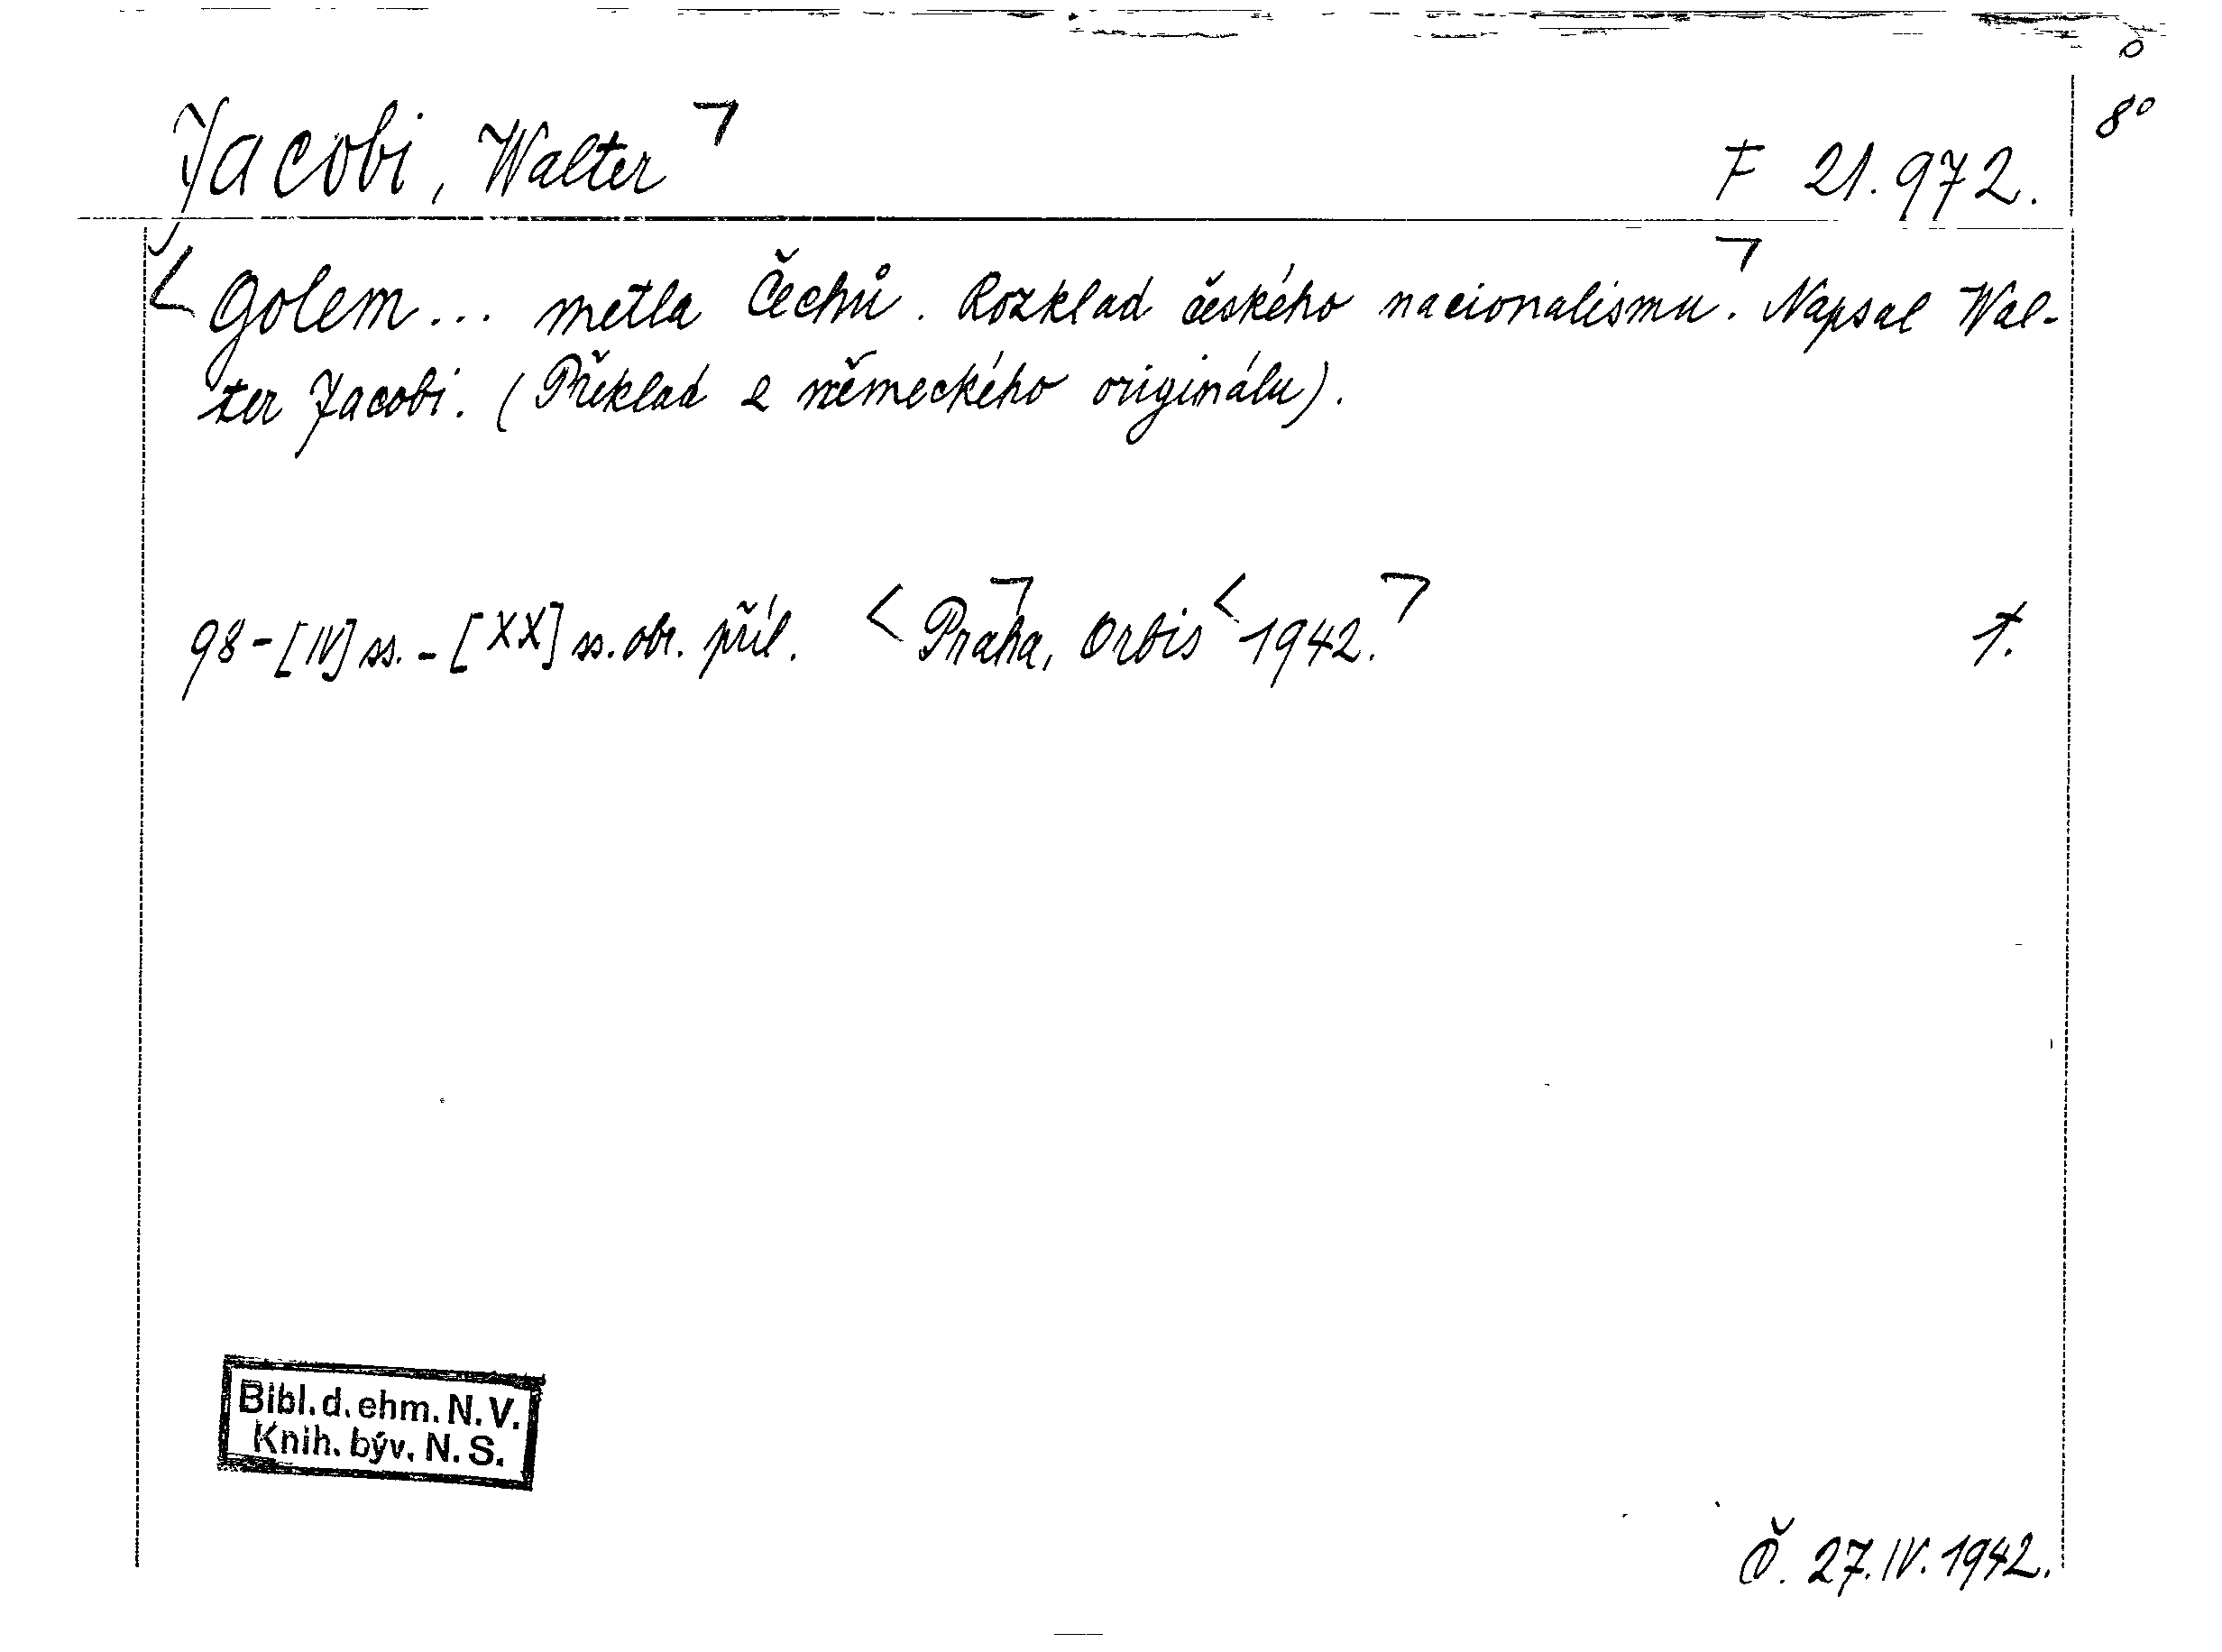 8°
Jacobi, Walter
F 21.972.
Golem... metla Čechů. Rozklad českého nacionalismu. Napsal Wal-
ter Jacobi. (Překlad z německého originálu).
98-[IV] ss.-[XX] ss. obr. příl. Praha, Orbis 1942. 1.
Bibl. d. ehm. N. V.
Knih. býv. N. S.
Č. 27.IV.1942.